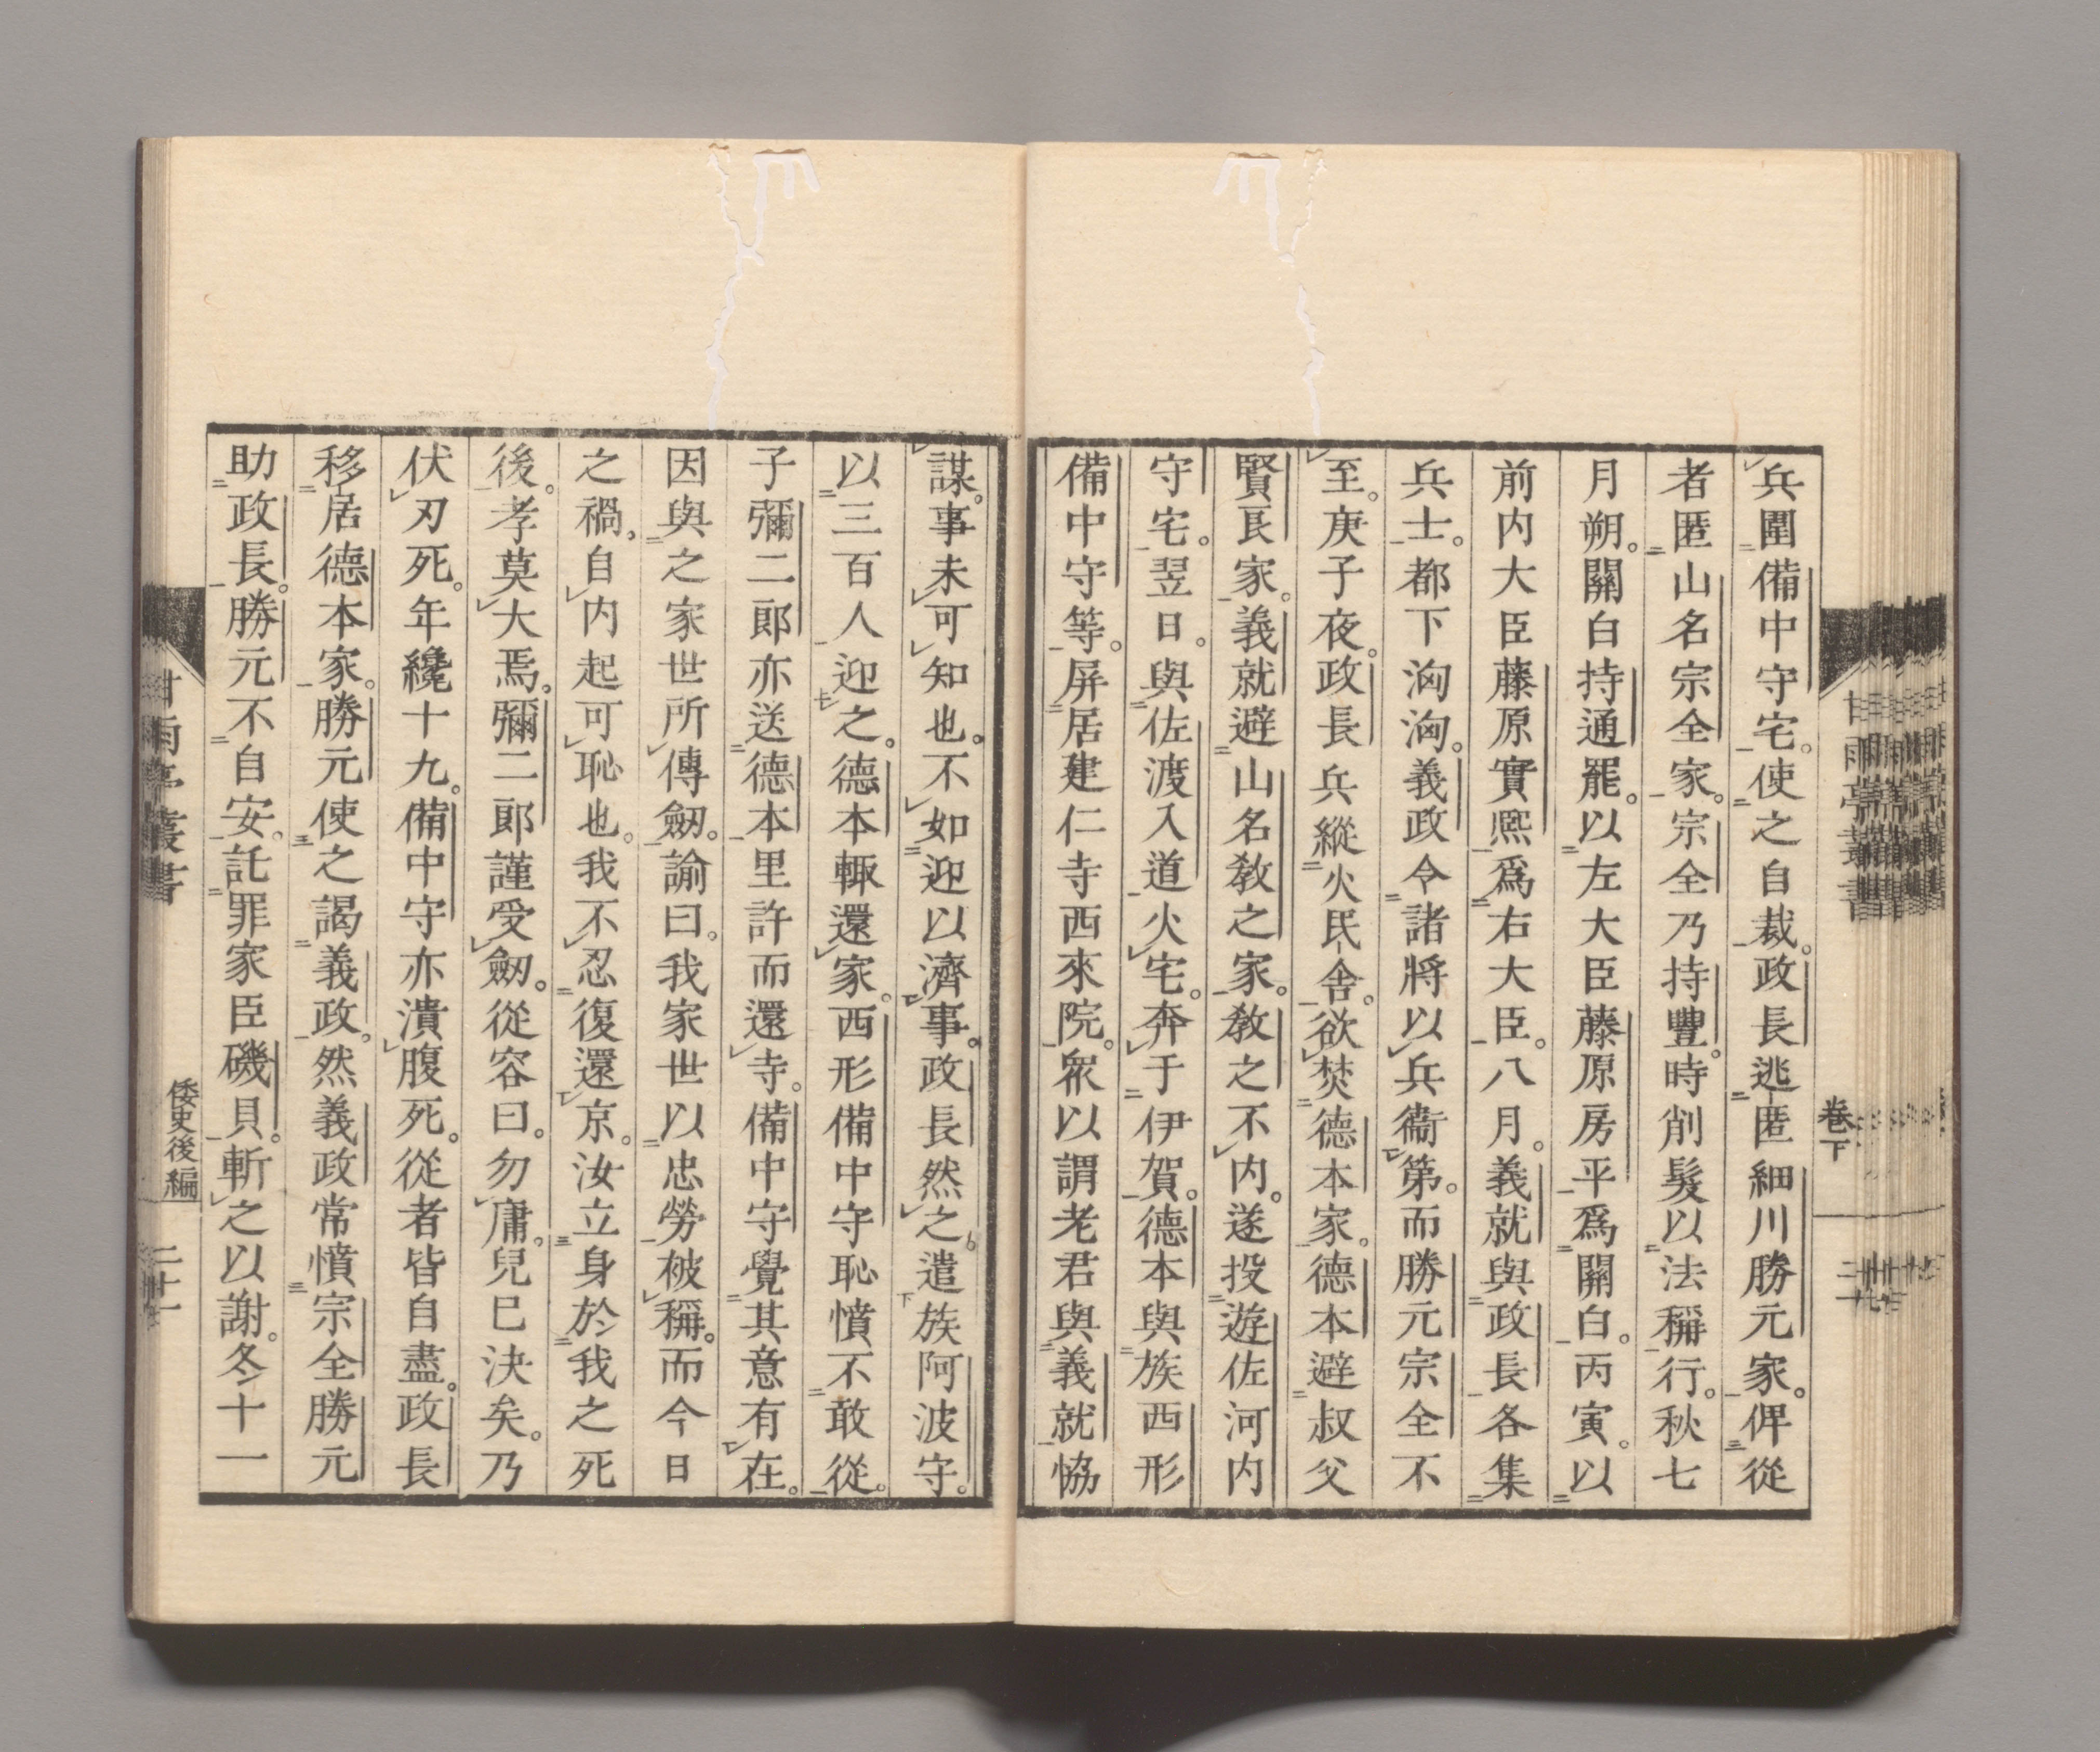 兵圍備中守宅。使之自裁。政長逃匿細川勝元家。俾從
者匿山名宗全家。宗全乃持豐。時削髮以法稱行。秋七
月朔。關白持通罷。以左大臣藤原房平爲關白。丙寅。以
前内大臣藤原實熈爲右大臣。八月。義就與政長各集
兵士。都下洶洶。義政令諸將以兵衞第。而勝元宗全不
至。庚子夜。政長兵縱火民舍。欲焚德本家。德本避叔父
賢良家。義就避山名敎之家。敎之不内。遂投遊佐河内
守宅。翌日。與佐渡入道火宅。奔于伊賀。德本與族西形
備中守等。屏居建仁寺西來院。衆以謂老君與義就恊
謀。事未可知也。不如迎以濟事。政長然之遣族阿波守。
以三百人迎之。德本輙還家。西形備中守恥憤不敢從。
子彌二郎亦送德本里許而還寺。備中守覺其意有在。
因與之家世所傳劒。諭曰。我家世以忠勞被稱。而今日
之禍。自内起可恥也。我不忍復還京。汝立身於我之死
後。孝莫大焉。彌二郎謹受劒。從容曰。勿庸。兒已決矣。乃
伏刃死。年纔十九。備中守亦潰腹死。從者皆自盡。政長
移居德本家。勝元使之謁義政。然義政常憤宗全勝元
助政長。勝元不自安。託罪家臣磯貝。斬之以謝。冬十一
甘雨亭叢書
倭史後編
二十一
甘雨亭叢書
卷下